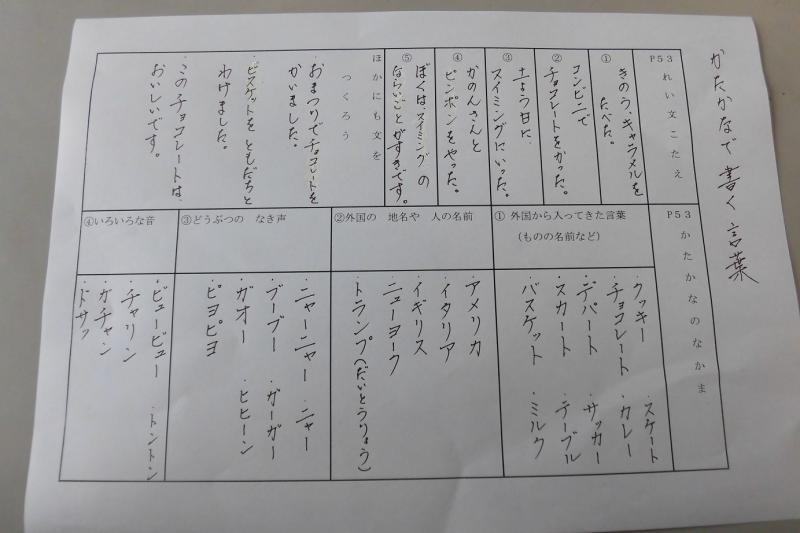 かたかなで書く言葉
P53 れい文こたえ
①
きのう、キャラメルを
たべた。
②
コンビニで
チョコレートをかった。
③
土よう日に、
スイミングにいった。
④
かのんさんと
ピンポンをやった。
⑤
ぼくは、スイミングの
ならいごとがすきです。
ほかにも文を
つくろう
・おまつりでチョコレートを
かいました。
・ビスケットをともだちと
わけました。
・このチョコレートは、
おいしいです。
P53 かたかなのなかま
①外国から入ってきた言葉
(ものの名前など)
・クッキー ・スケート
・チョコレート ・カレー
・デパート ・サッカー
・スカート ・テーブル
・バスケット ・ミルク
②外国の 地名や 人の名前
・アメリカ
・イタリア
・イギリス
・ニューヨーク
・トランプ(だいとうりょう)
③どうぶつの なき声
・ニャーニャー ・ニャー
・ブーブー ・ガーガー
・ガオー ・ヒヒーン
・ピヨピヨ
④いろいろな音
・ビュービュー ・トントン
・チャリン
・ガチャン
・ドサッ